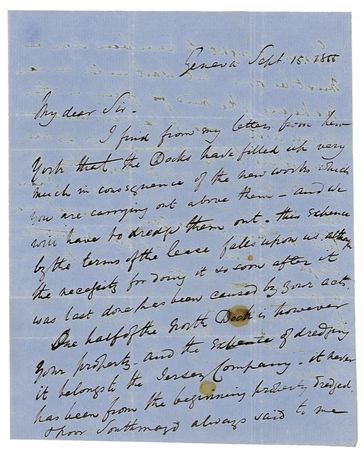 Geneva Sept 18. 1855
My dear Sir.
I find from my letters from New
York that the Docks have filled up very
much in consequence of the new works which
you are carrying out above them - and we
will have to dredge them out - this expense
by the terms of the lease falls upon us, altho
the necessity for doing it so soon after it
was last done has been caused by your acts.
One half of the North Dock is however
your property and the expense of dredging
it belongs to the Jersey Company. it never
has been from the beginning properly dredged
& poor Southmayd always said to me